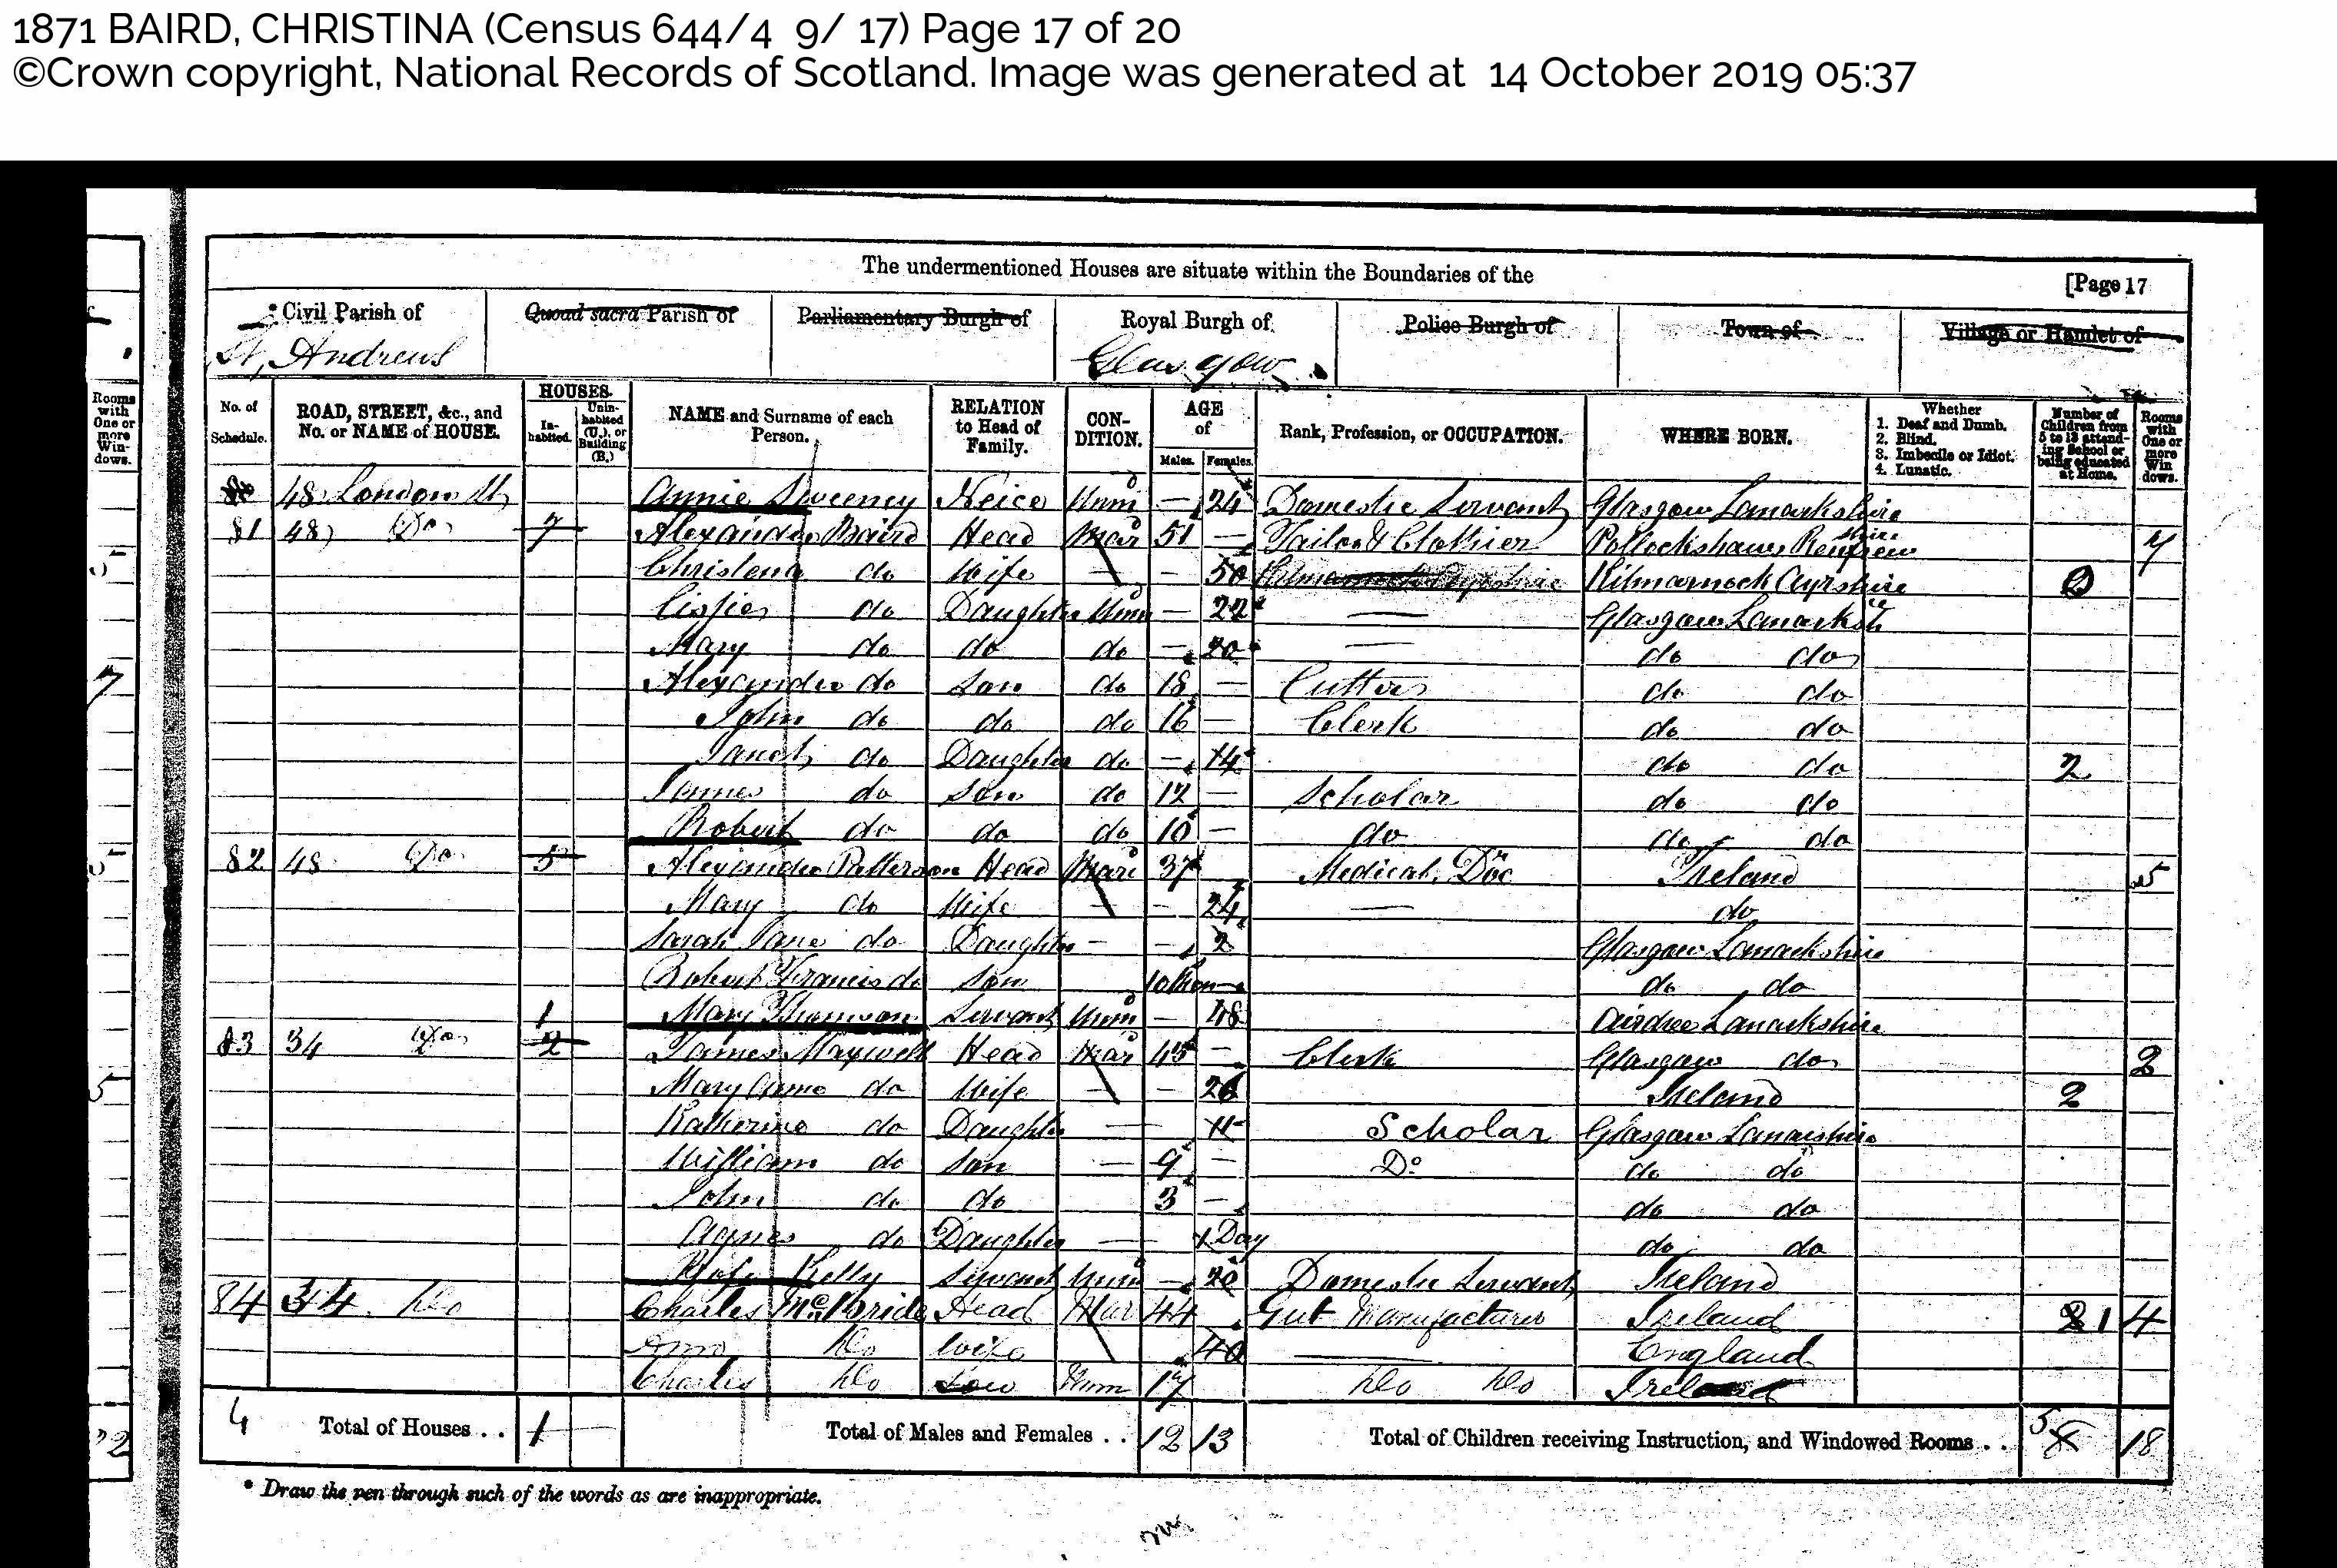 1871 BAIRD, CHRISTINA (Census 644/4 9/ 17) Page 17 of 20
©Crown copyright, National Records of Scotland. Image was generated at 14 October 2019 05:37
The undermentioned Houses are situate within the Boundaries of the
[Page 17
* Civil Parish of Quoad sacra Parish of Parliamentary Burgh of Royal Burgh of Police Burgh of Town of Village or Hamlet of
St. Andrews Glasgow
No. of Schedule. ROAD, STREET, &c., and No. or NAME of HOUSE. HOUSES. Inhabited. Uninhabited (U.), or Building (B.) NAME and Surname of each Person. RELATION to Head of Family. CONDITION. AGE of Males. Females. Rank, Profession, or OCCUPATION. WHERE BORN. Whether 1. Deaf and Dumb. 2. Blind. 3. Imbecile or Idiot. 4. Lunatic. Number of Children from 5 to 13 attending School or being educated at Home. Rooms with One or more Windows.
80 48 London St Annie Sweeney Neice Unm — 24 Domestic Servant Glasgow Lanarkshire
81 48 Do 7 Alexander Baird Head Mar 51 — Tailor & Clothier Pollockshaws Renfrewshire 7
Christena do Wife — — 50 Kilmarnock Ayrshire Kilmarnock Ayrshire 0
do Daughter Unm — 22 — Glasgow Lanarksh
Mary do do do — 20 — do do
Alexander do Son do 18 — Cutter do do
John do do do 16 — Clerk do do
Janet do Daughter do — 14 do do 2
James do Son do 12 — Scholar do do
Robert do do do 10 — do do do
82 48 Do 5 Alexander Patterson Head Mar 37 Medical Doc Ireland 5
Mary do Wife — — 24 — do
Sarah Jane do Daughter — — 2 Glasgow Lanarkshire
Robert Francis do Son 10 Mon — do do
1 Mary Thomson Servant Unm — 48 Airdrie Lanarkshire
83 34 Do 2 James Maxwell Head Mar 45 — Clerk Glasgow do 2
Mary Anne do Wife — — 26 Ireland 2
Katherine do Daughter — 11 Scholar Glasgow Lanarshire
William do Son — 9 — Do do do
John do do 3 — do do
Agnes do Daughter — 1 Day do do
Rose Kelly Servant Unm — 20 Domestic Servant Ireland
84 34 Do Charles McBride Head Mar 44 Gut Manufacturer Ireland 2 1 4
Do Wife 40 — England
Charles Do Son Unm 17 Do Do Ireland
4 Total of Houses . . 1 — Total of Males and Females . . 12 13 Total of Children receiving Instruction, and Windowed Rooms . . 5 18
* Draw the pen through such of the words as are inappropriate.
Rooms with One or more Windows.
5
7
5
5